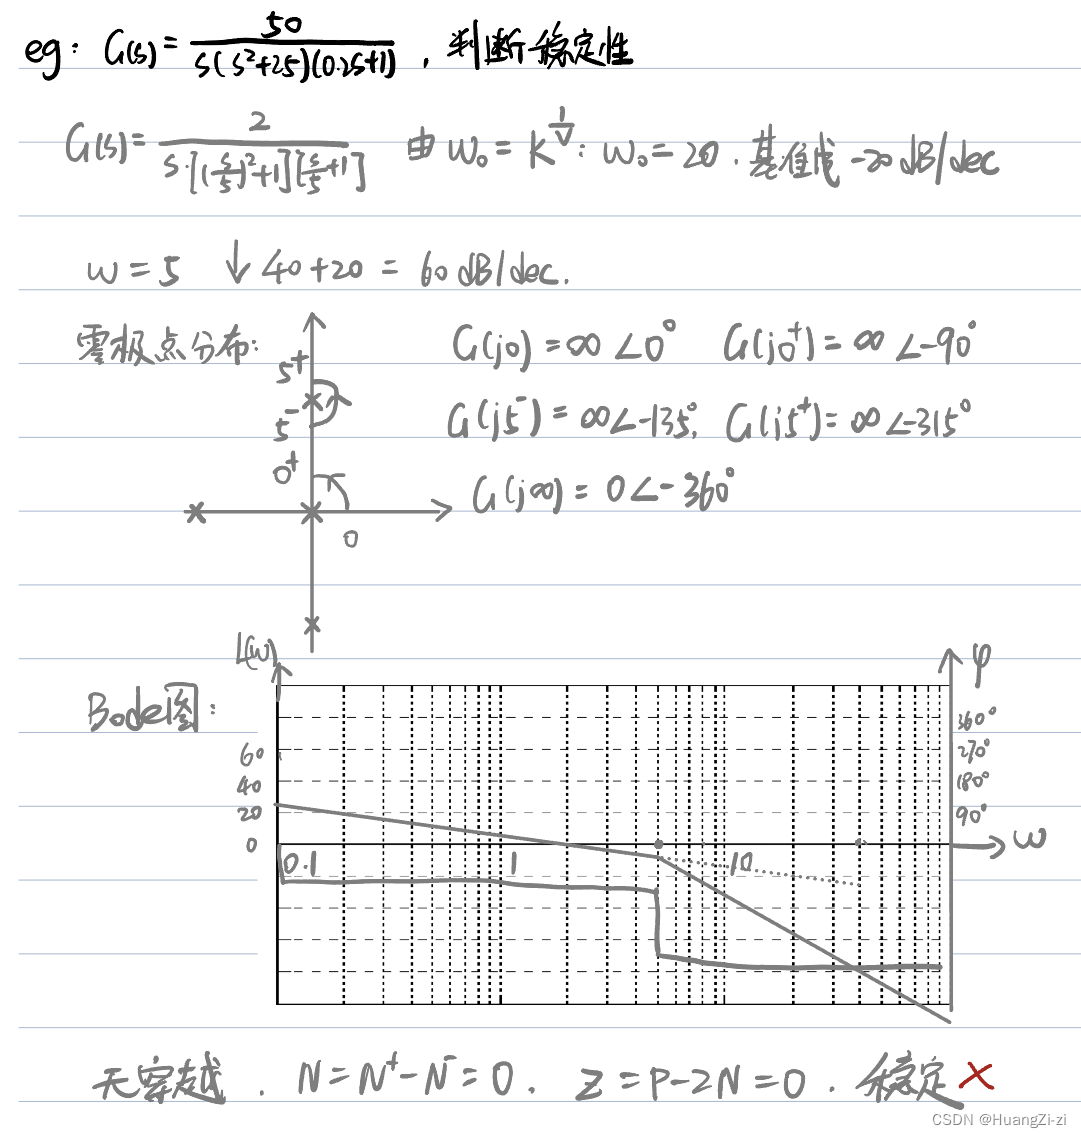 eg: G(s) = 50 / s(s²+25)(0.2s+1) , 判断稳定性
G(s) = 2 / s·[(s/5)²+1][s/5+1] 由 ω₀ = K^(1/ν): ω₀ = 20 . 基准线 -20 dB/dec
ω = 5 ↓ 40+20 = 60 dB/dec.
零极点分布:
G(j0) = ∞∠0° G(j0⁺) = ∞∠-90°
5⁺
5⁻
G(j5⁻) = ∞∠-135°, G(j5⁺) = ∞∠-315°
0⁺
G(j∞) = 0∠-360°
0
L(ω)
φ
Bode图:
360°
60
270°
40
180°
20
90°
0
ω
0.1 1 10
无穿越 . N = N⁺-N⁻ = 0 . Z = P-2N = 0 . 稳定 ×
CSDN @HuangZi-zi